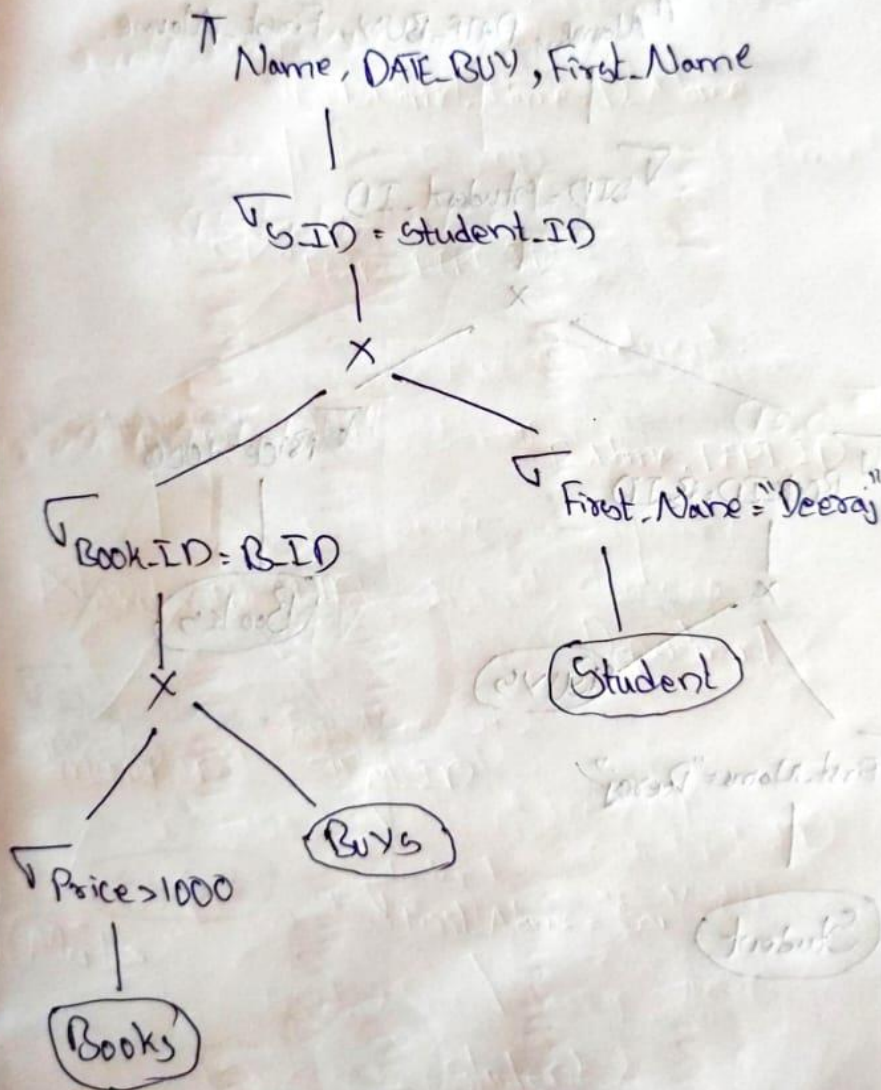 π Name, DATE_BUY, First_Name
σ S_ID = Student_ID
×
σ Book_ID = B_ID
σ First_Name = "Deeraj"
×
Student
σ Price > 1000
Buys
Books